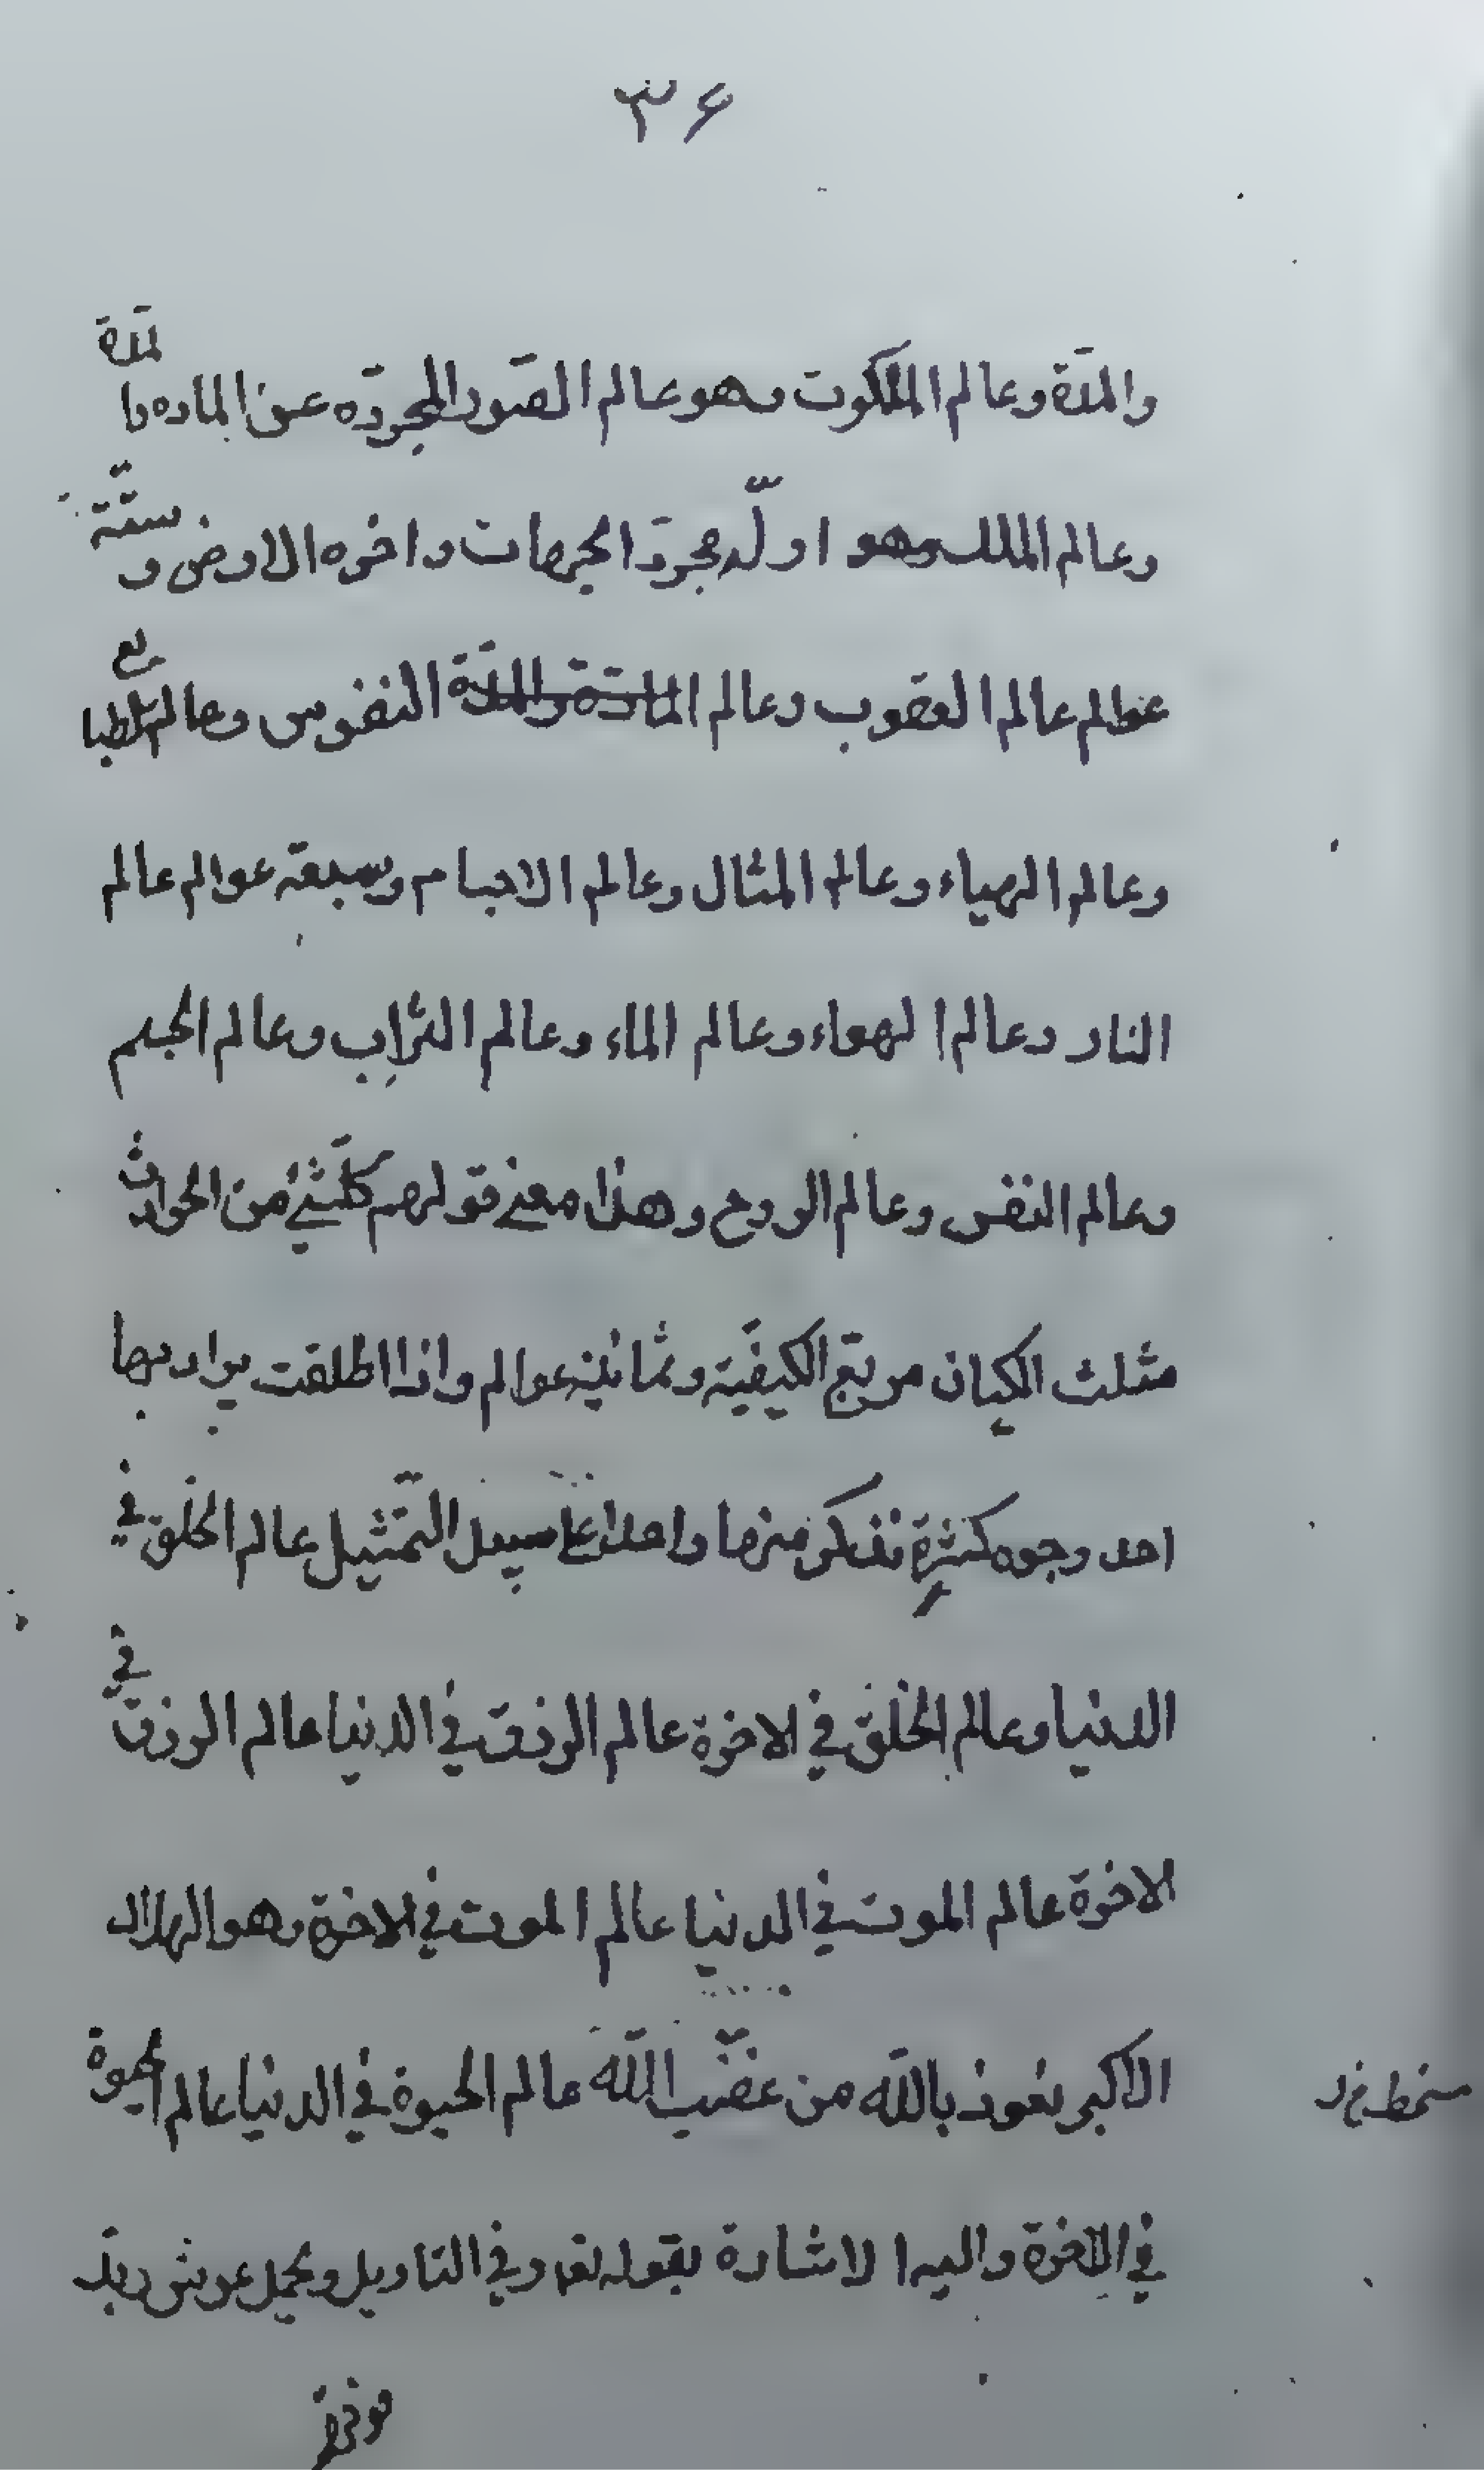 ٣٤
والمدّة وعالم الملكوت وهو عالم الصّور المجرّده عن الماده والمدّة
وعالم الملك وهو اوّله محدّد الجهات واخره الارض و ستّة
عوالم عالم العقول وعالم المادّة والمدّة النفوس وعالم الطبايع
وعالم الهباء وعالم المثال وعالم الاجسام وسبعة عوالم عالم
النار وعالم الهواء وعالم الماء وعالم التراب وعالم الجسم
وعالم النفس وعالم الروح وهذا معنى قولهم كلّ شئ من الحوادث
مثلث الكيان مربّع الكيفيّة وثمانية عوالم واذا اطلقت يراد بها
احد وجوه كثيرة نذكر منها واحدا على سبيل التّمثيل عالم الخلق في
الدنيا وعالم الخلق في الاخرة عالم الرزق في الدنيا عالم الرزق في
الاخرة عالم الموت في الدنيا عالم الموت في الاخرة وهو الهلاك
الاكبر نعوذ بالله من غضب الله عالم الحيوة في الدنيا عالم الحيوة
سخط
في الاخرة واليه الاشارة بقوله تع وفي التاويل ويحمل عرش ربّك
فوقهم